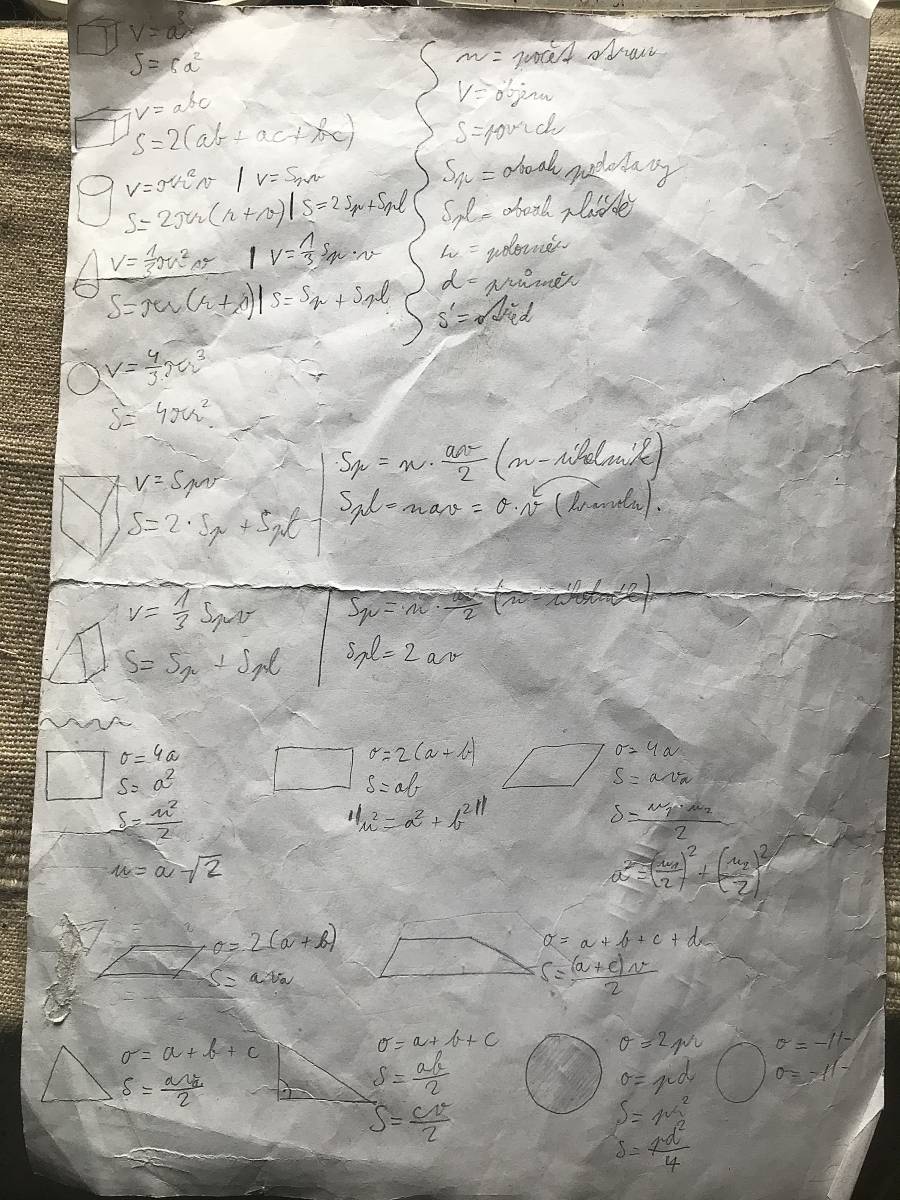 V = a³
S = 6a²
V = abc
S = 2(ab + ac + bc)
V = πr²v | V = Spv
S = 2πr(r + v) | S = 2Sp + Spl
V = 1/3 πr²v | V = 1/3 Sp · v
S = πr(r + s) | S = Sp + Spl
V = 4/3 πr³
S = 4πr²
n = počet stran
V = objem
S = povrch
Sp = obsah podstavy
Spl = obsah pláště
r = poloměr
d = průměr
S' = střed
V = Spv
S = 2 · Sp + Spl
Sp = n · av/2 (n - úhelník)
Spl = nav = o · v (hranolu).
V = 1/3 Spv
S = Sp + Spl
Sp = n · av/2 (n - úhelník)
Spl = 2av
o = 4a
S = a²
S = u²/2
u = a √2
o = 2(a + b)
S = ab
"u² = a² + b²"
o = 4a
S = ava
S = u1 · u2/2
a² = (u1/2)² + (u2/2)²
o = 2(a + b)
S = ava
o = a + b + c + d
S = (a + c)v/2
o = a + b + c
S = ava/2
o = a + b + c
S = ab/2
S = cv/2
o = 2pr
o = pd
S = pr²
S = pd²/4
o = -11-
o = -11-